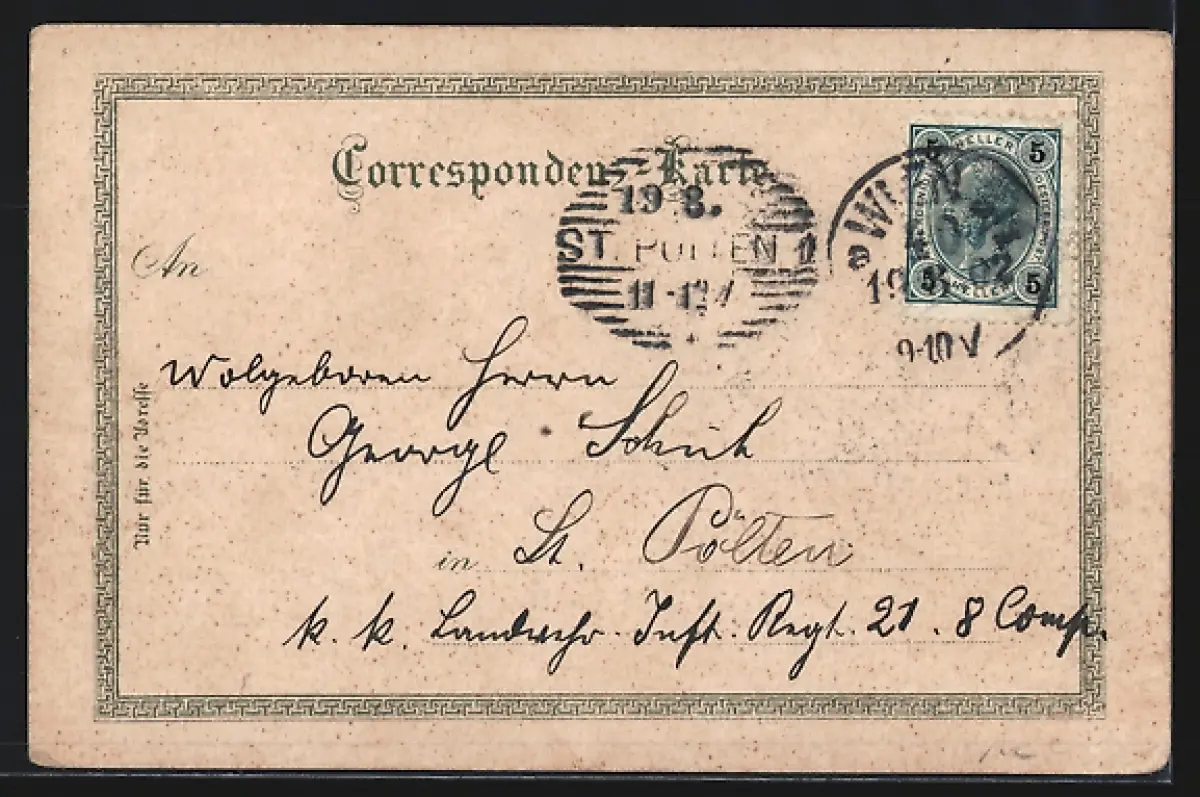 Correspondenz-Karte
19 8.
ST. PÖLTEN 1
5 HELLER 5
WIEN
19 8 02
5 HELLER 5
9-10 V
An
Wolgeboren Herrn
George Schuh
in St. Pölten
k. k. Landwehr. Inft. Regt. 21. 8 Comp.
Nur für die Adresse